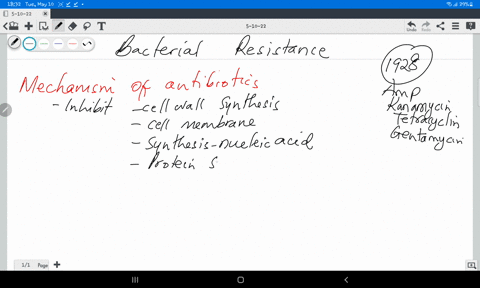 18:33 Tue, May 10
95%
5-10-22
5-10-22
Undo Redo More
Bacterial Resistance
1928
Mechanism of antibiotics
Amp
- Inhibit - cell wall synthesis
Kanamycin
- cell membrane
Tetracyclin
- Synthesis - nucleic acid
Gentamycin
- Protein S
1/1 Page